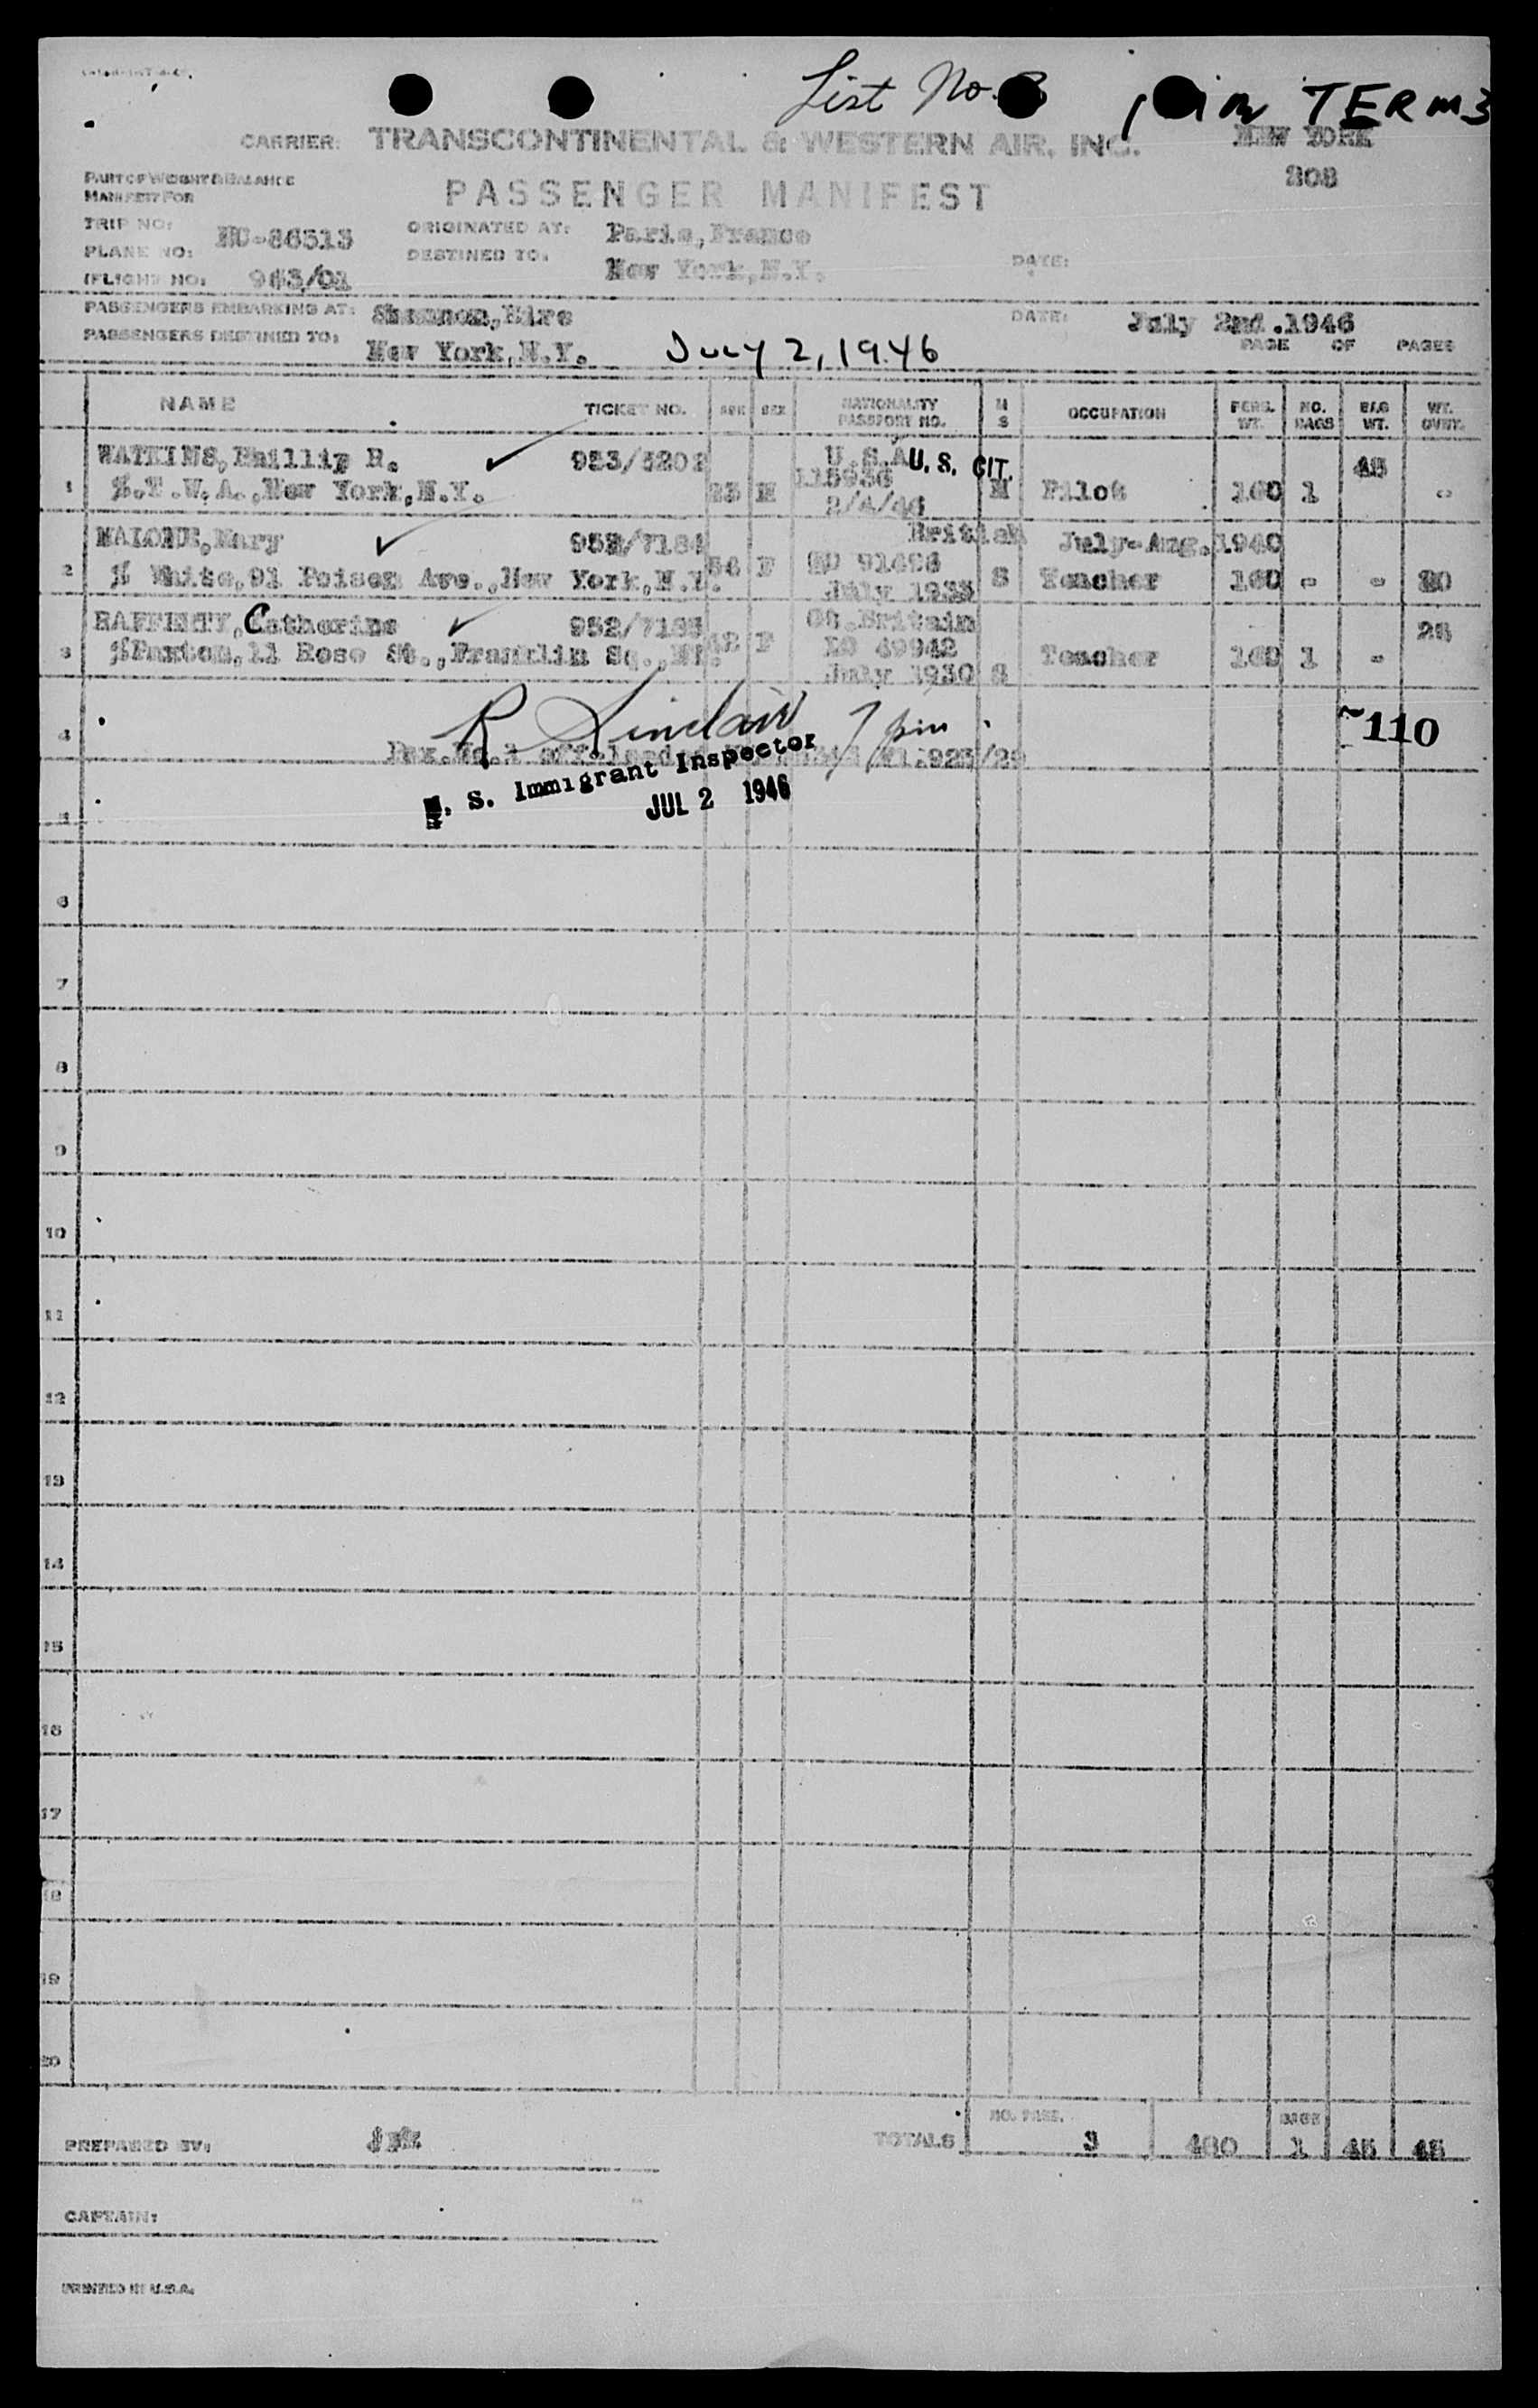 List No.
TERMS
CARRIER: TRANSCONTINENTAL & WESTERN AIR, INC.
NEW YORK
PART OF WEIGHT & BALANCE
MANIFEST FOR
PASSENGER MANIFEST
TRIP NO:
NC-86513
ORIGINATED AT: Paris,France
PLANE NO:
DESTINED TO: New York,N.Y.
DATE:
(FLIGHT NO: 963/01
PASSENGERS EMBARKING AT: Shannon,Eire
DATE: July 2nd.1946
PASSENGERS DESTINED TO: New York,N.Y. July 2, 1946
PAGE OF PAGES
NAME TICKET NO. AGE SEX NATIONALITY PASSPORT NO. M S OCCUPATION PERS. WT. NO. BAGS BAG WT. WT. OVWT.
WATKINS,Phillip R. U.S.A U. S. CIT. 45
1 %.T.W.A.,New York,N.Y. M M Pilot 160 1 -
2/4/46
MALONE,Mary British July-Aug.1940
2 % White,91 Ave.,New York,N.Y. 56 F S Teacher 160 - -
July 1935
RAFFERTY,Catherine Gt.Britain 25
3 %Paxton,11 Rose St.,Franklin Sq.,NY. 42 F Teacher 160 1 -
July 1930 S
R Sinclair
4 110
U. S. Immigrant Inspector
JUL 2 1946
5
6
7
8
9
10
11
12
13
14
15
16
17
18
19
20
NO. PASS. BAGS
PREPARED BY:
TOTALS 3 480 1 45 45
CAPTAIN:
PRINTED IN U.S.A.